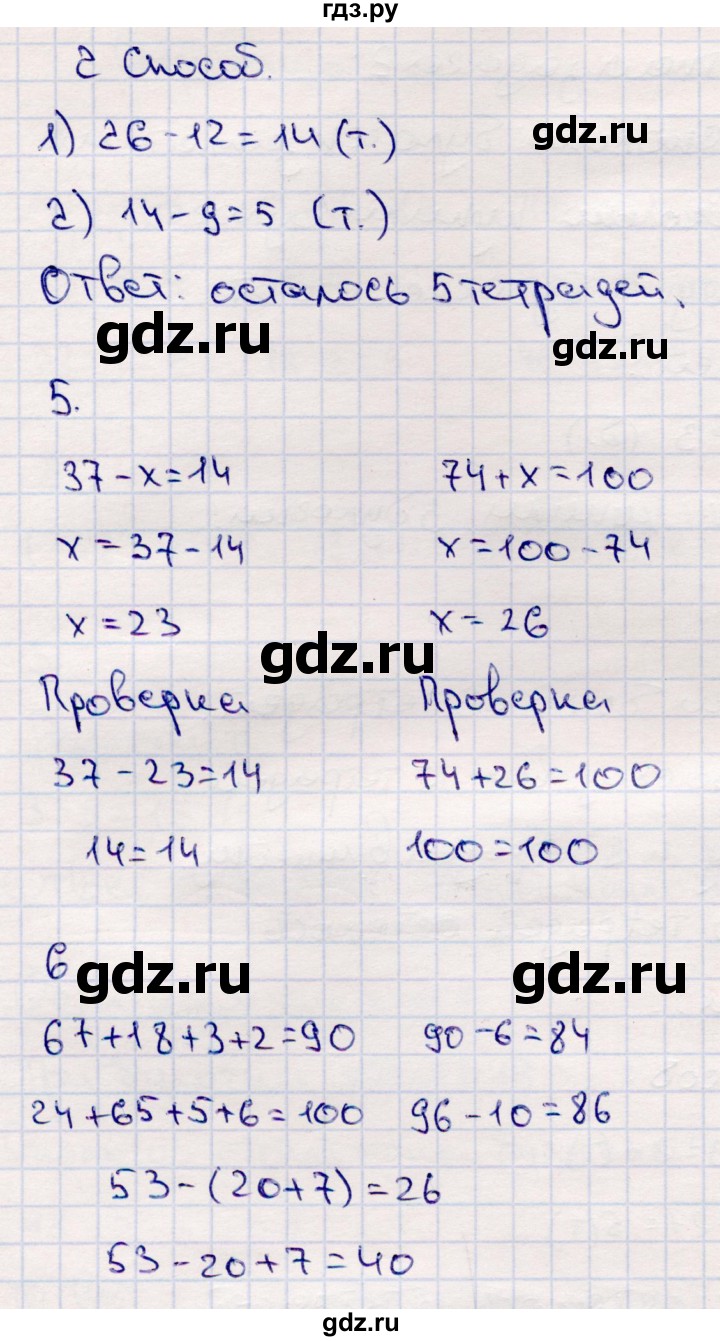 гдз.ру
2 способ.
1) 26-12=14 (т.)
gdz.ru
2) 14-9=5 (т.)
Ответ: осталось 5 тетрадей.
gdz.ru
gdz.ru
5.
37-x=14 74+x=100
x=37-14 x=100-74
x=23 x=26
gdz.ru
Проверка Проверка
37-23=14 74+26=100
14=14 100=100
6
gdz.ru gdz.ru
67+18+3+2=90 90-6=84
24+65+5+6=100 96-10=86
53-(20+7)=26
53-20+7=40
gdz.ru